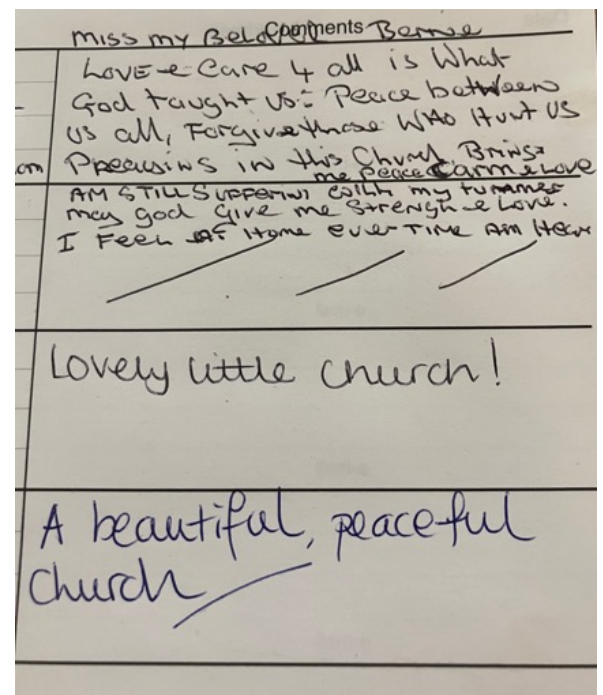 Comments
Miss my Beloved Bernie
Love & Care 4 all is What
God taught us: Peace between
us all, Forgive those WHO Hurt US
om
in this Church Brings
me Peace Carm & Love
AM STILL SUFFERING with my tummer
may god Give me Strengh & Love.
I Feel AT Home ever TIME AM Hear
Lovely little church!
A beautiful, peaceful
church